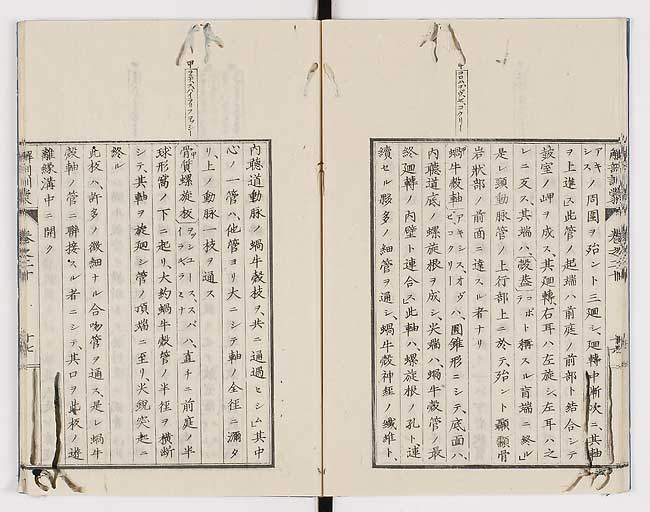 アキノ周圍ヲ殆ント三廻シ、廻轉中漸次ニ其軸
ヲ上進ス此管ノ起端ハ前庭ノ前部ト結合シテ
該室ノ岬ヲ成ス、其廻轉、右耳ハ左旋シ、左耳ハ之
レニ反ス、其端ハ、殼蓋ト稱スル盲端ニ終ル」
是レ頸動脈管ノ上行部上ニ於テ、殆ント顳顬骨
岩狀部ノ前面ニ達スル者ナリ
蝸牛殼軸ハ圓錐形ニシテ、底面ハ、
内聽道底ノ螺旋根ヲ成シ、尖端ハ、蝸牛殼管ノ最
終廻轉ノ内壁ト連合ス」此軸ハ、螺旋根ノ孔ト連
續セル夥多ノ細管ヲ通シ、蝸牛殼神經ノ纖維ト、
内聽道動脈ノ蝸牛殼枝ヲ、共ニ通過セシム其中
心ノ一管ハ、他管ヨリ大ニシテ軸ノ全徑ニ瀰タ
リ、上ノ動脈一枝ヲ通ス
骨質螺旋板ハ、直チニ前庭ノ半
球形窩ノ下ニ起リ、大約蝸牛殼管ノ半徑ヲ橫斷
シテ、其軸ヲ旋廻シ管ノ頂端ニ至リ、尖銳突起ニ
終ル
此板ハ、許多ノ微細ナル合吻管ヲ通ス、是レ蝸牛
殼軸ノ管ニ聯接スル者ニシテ、其口ヲ此板ノ遊
離緣溝中ニ開ク
解剖訓蒙 卷之二十 十七